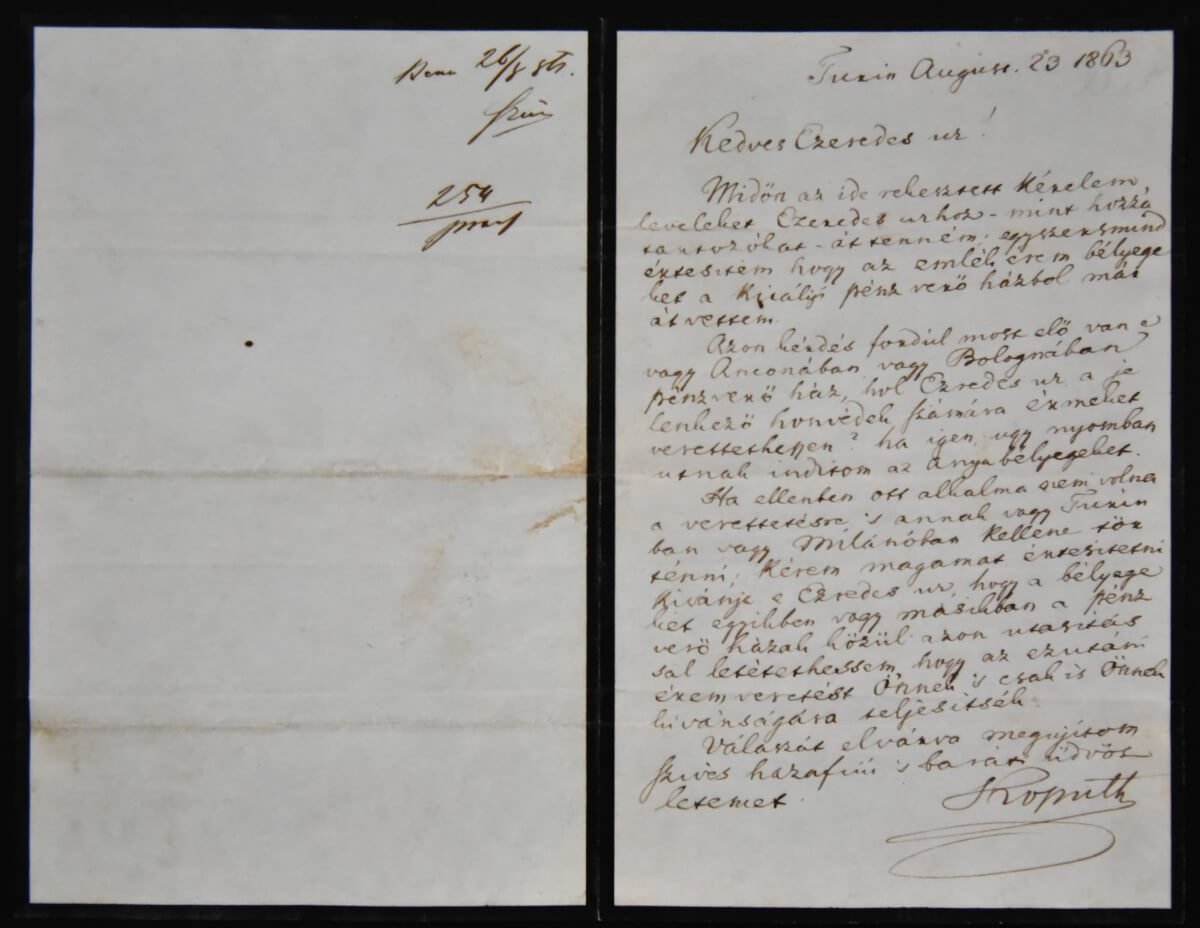 26/8
254
Turin August. 23 1863
Kedves Ezeredes ur!
Midőn az ide rekesztett Kérelem
leveleket Ezeredes urhoz - mint hozzá
tartozólat - át tenném, egyszersmind
értesitem hogy az emlék érem bélyege
ket a Királyi pénz verő házbol már
át vettem.
Azon kérdés fordúl most elő van e
vagy Anconában vagy Bolognában
pénzverő ház, hol Ezredes ur a je
lenkező honvédek számára érmeket
verettethessen? ha igen, ugy nyomban
utnak inditom az anya bélyegeket.
Ha ellenben ott alkalma nem volna
a verettetésre, 's annak vagy Turin
ban vagy Milánóban kellene tör
ténni; Kérem magamat értesitetni
Kivánja e Ezredes ur, hogy a bélyege
ket egyikben vagy másikban a pénz
verő házak közül azon utasitás
sal letétethessem, hogy az ezutáni
érem veretést Önnek 's csak is Önnek
kivánságára teljesitsék.
Válaszát elvárva megujitom
szives hazafiúi 's baráti üdvöz
letemet.
Kossuth